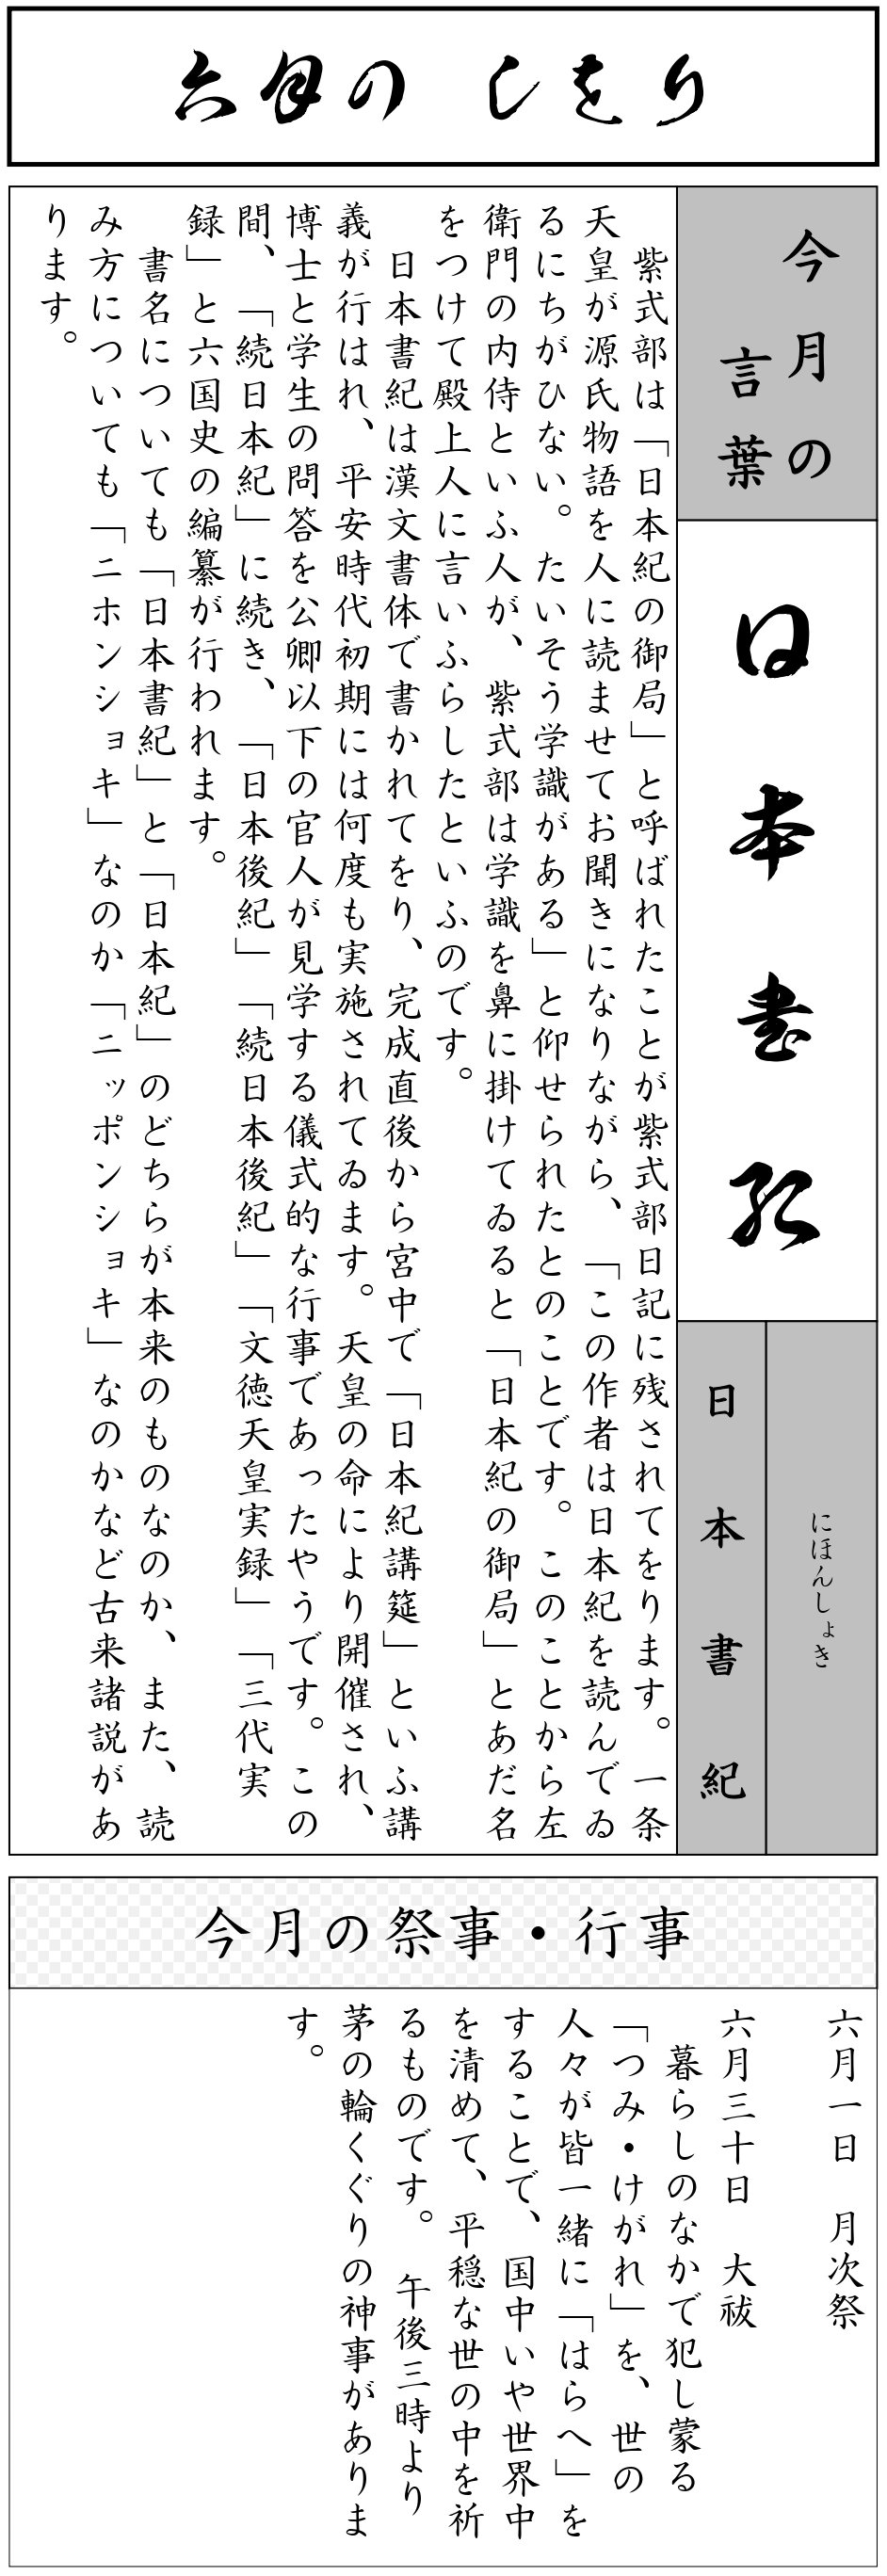 六月の しをり
今月の
言葉
日本書紀
にほんしょき
日本書紀
紫式部は「日本紀の御局」と呼ばれたことが紫式部日記に残されてをります。一条
天皇が源氏物語を人に読ませてお聞きになりながら、「この作者は日本紀を読んでゐ
るにちがひない。たいそう学識がある」と仰せられたとのことです。このことから左
衛門の内侍といふ人が、紫式部は学識を鼻に掛けてゐると「日本紀の御局」とあだ名
をつけて殿上人に言いふらしたといふのです。
日本書紀は漢文書体で書かれてをり、完成直後から宮中で「日本紀講筵」といふ講
義が行はれ、平安時代初期には何度も実施されてゐます。天皇の命により開催され、
博士と学生の問答を公卿以下の官人が見学する儀式的な行事であったやうです。この
間、「続日本紀」に続き、「日本後紀」「続日本後紀」「文徳天皇実録」「三代実
録」と六国史の編纂が行われます。
書名についても「日本書紀」と「日本紀」のどちらが本来のものなのか、また、読
み方についても「ニホンショキ」なのか「ニッポンショキ」なのかなど古来諸説があ
ります。
今月の祭事・行事
六月一日　月次祭
六月三十日　大祓
暮らしのなかで犯し蒙る
「つみ・けがれ」を、世の
人々が皆一緒に「はらへ」を
することで、国中いや世界中
を清めて、平穏な世の中を祈
るものです。　午後三時より
茅の輪くぐりの神事がありま
す。